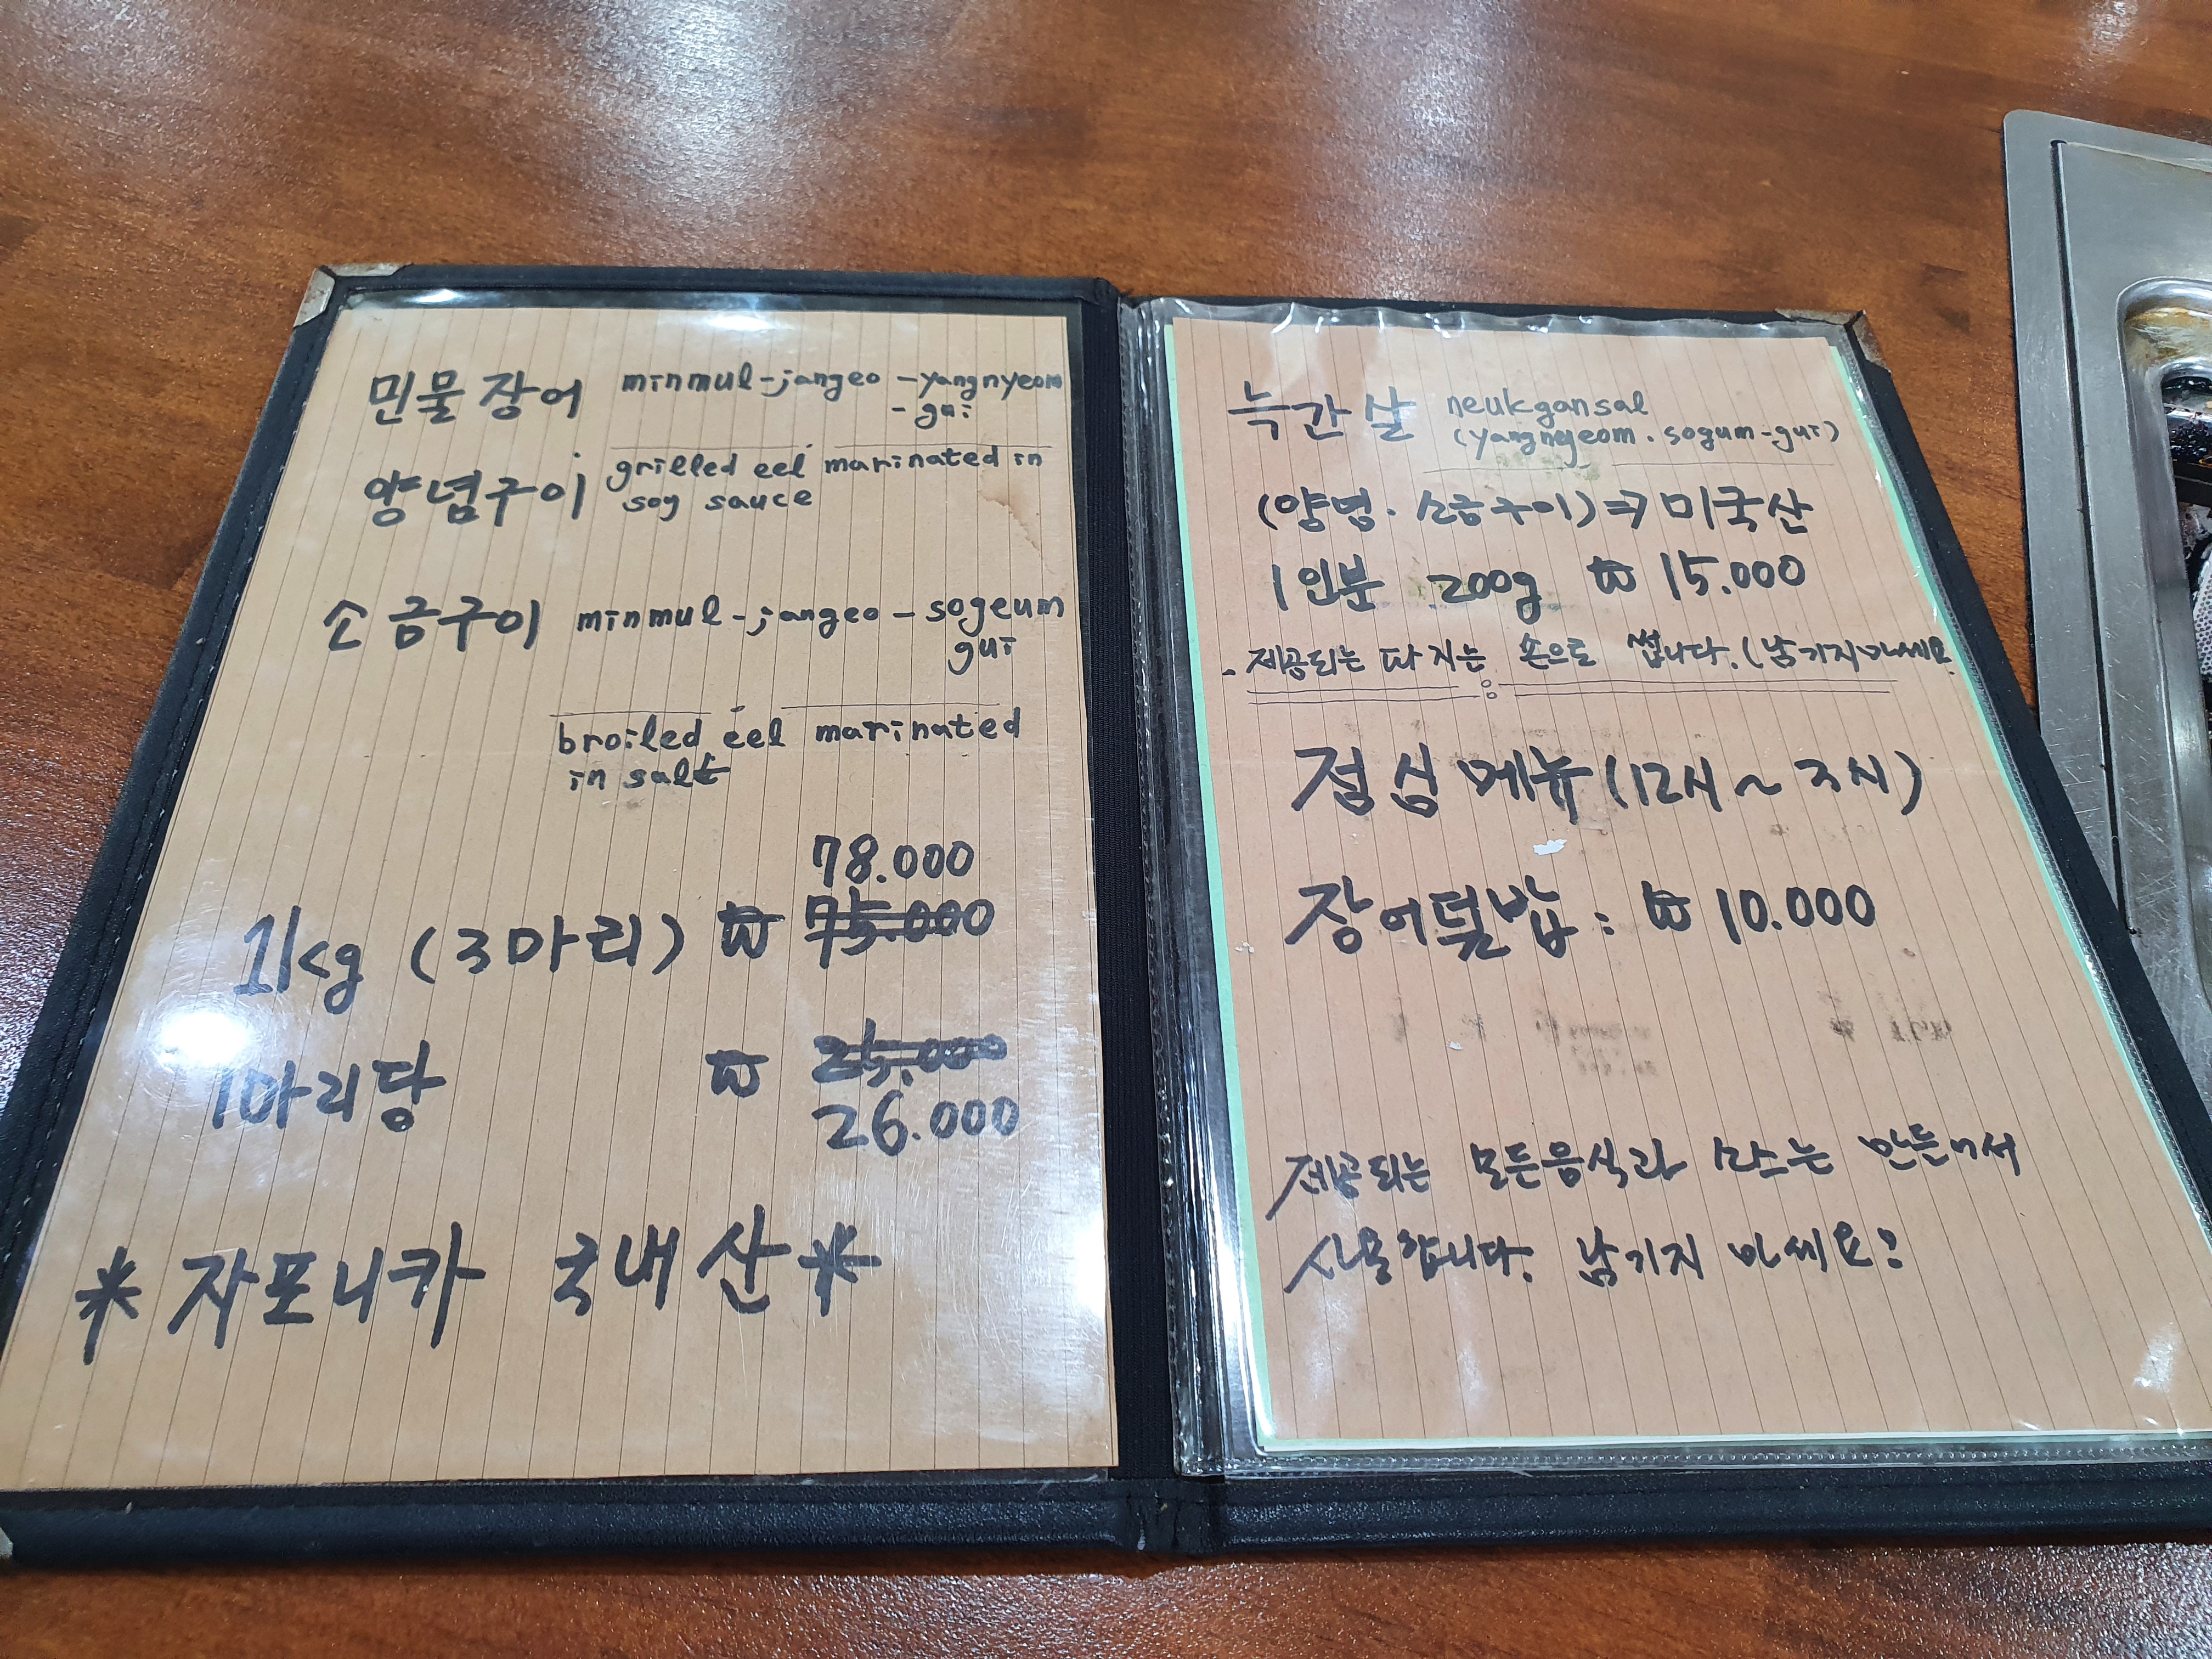 민물장어 minmul-jangeo-yangnyeom
-gui
양념구이 grilled eel marinated in
soy sauce
소금구이 minmul-jangeo-sogeum
gui
broiled eel marinated
in salt
78.000
1kg (3마리) ₩ 75.000
1마리당 ₩ 25.000
26.000
* 자포니카 국내산 *
늑간살 neukgansal
(yangnyeom. sogum-gui)
(양념. 소금구이) ⇒ 미국산
1인분 200g ₩ 15.000
- 제공되는 파지는 손으로 썹니다. (남기지마세요
점심메뉴 (12시 ~ 3시)
장어덮밥 : ₩ 10.000
제공되는 모든음식과 소스는 만들어서
사용합니다. 남기지 마세요?